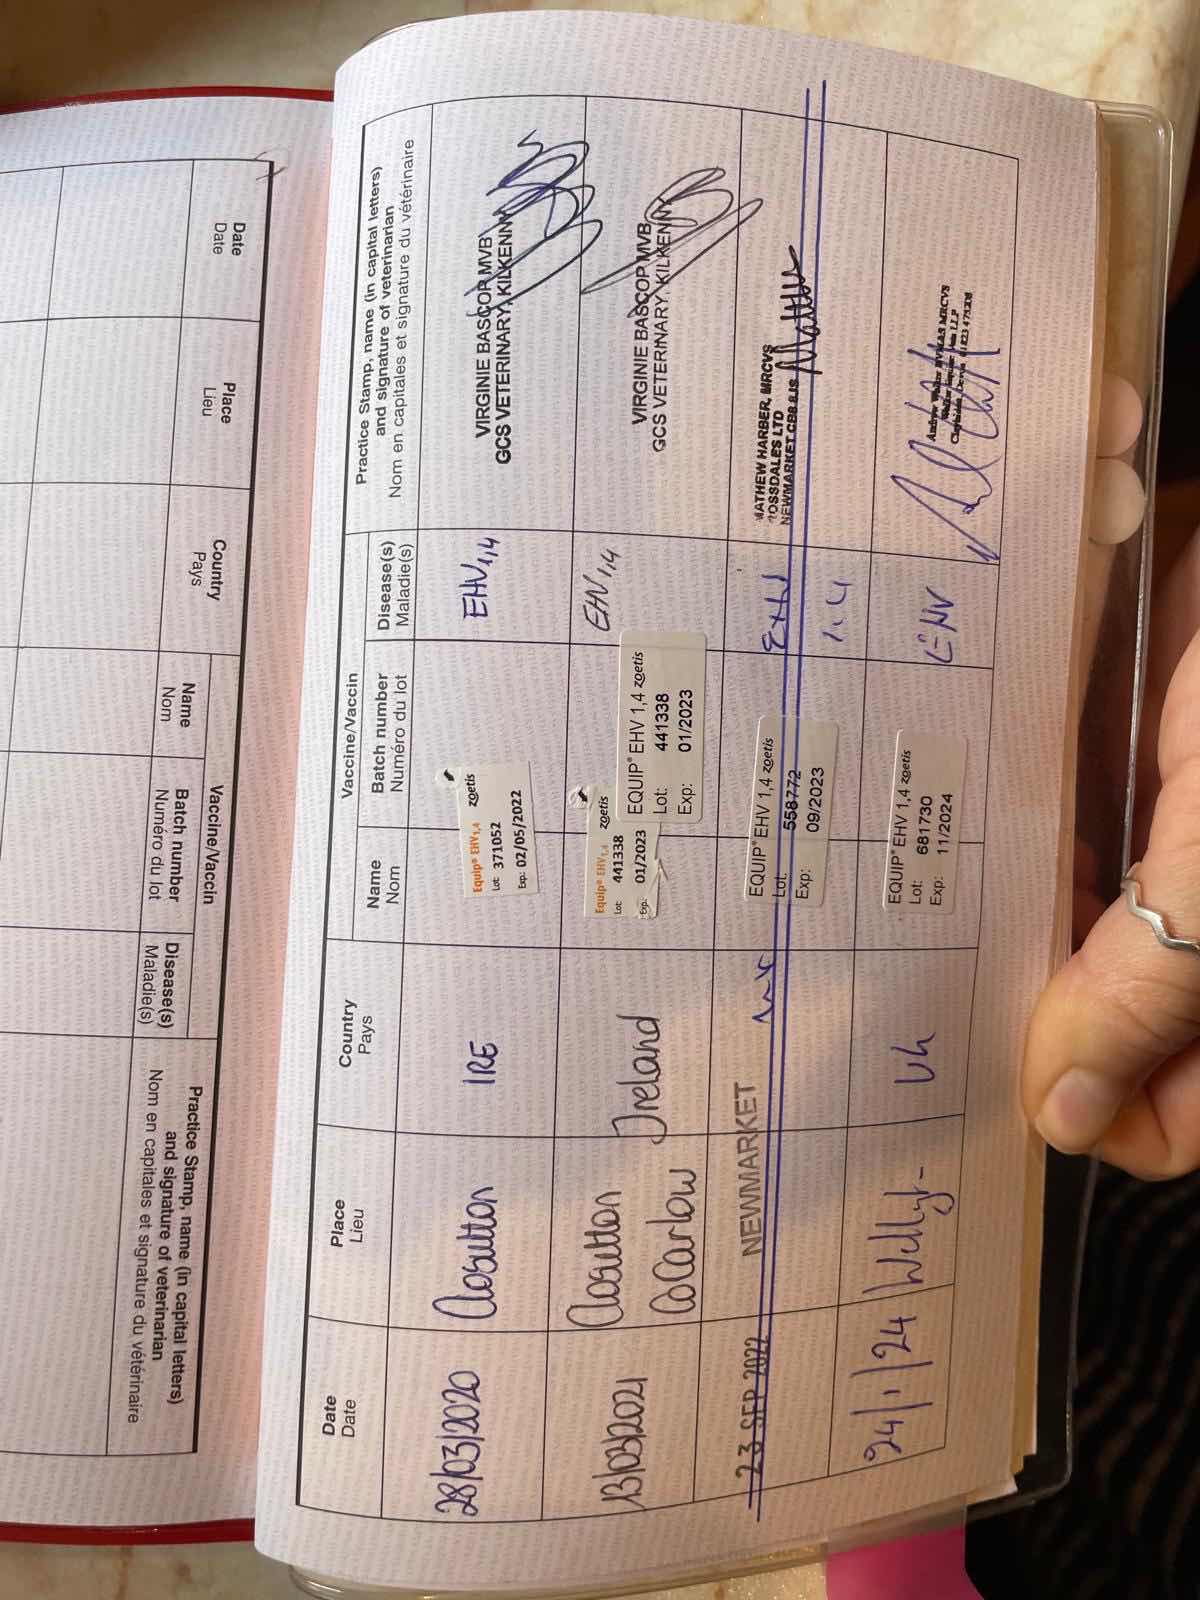 Date
Date
Place
Lieu
Country
Pays
Vaccine/Vaccin
Name
Nom
Batch number
Numéro du lot
Disease(s)
Maladie(s)
Practice Stamp, name (in capital letters)
and signature of veterinarian
Nom en capitales et signature du vétérinaire
28/03/2020
Closutton
IRE
Equip® EHV1,4 zoetis
Lot: 371052
Exp: 02/05/2022
EHV1,4
VIRGINIE BASCOP MVB
GCS VETERINARY, KILKENNY
13/03/2021
Closutton
Co Carlow
Ireland
Equip® EHV1,4 zoetis
Lot: 441338
Exp. 01/2023
EQUIP® EHV 1,4 zoetis
Lot: 441338
Exp: 01/2023
EHV1,4
VIRGINIE BASCOP MVB
GCS VETERINARY, KILKENNY
23 SEP 2022
NEWMARKET
EQUIP® EHV 1,4 zoetis
Lot: 558772
Exp: 09/2023
1.4
MATHEW HARBER, MRCVS
ROSSDALES LTD
NEWMARKET CB8 8JS
24/1/24
UK
EQUIP® EHV 1,4 zoetis
Lot: 681730
Exp: 11/2024
EHV
Date
Date
Place
Lieu
Country
Pays
Vaccine/Vaccin
Name
Nom
Batch number
Numéro du lot
Disease(s)
Maladie(s)
Practice Stamp, name (in capital letters)
and signature of veterinarian
Nom en capitales et signature du vétérinaire